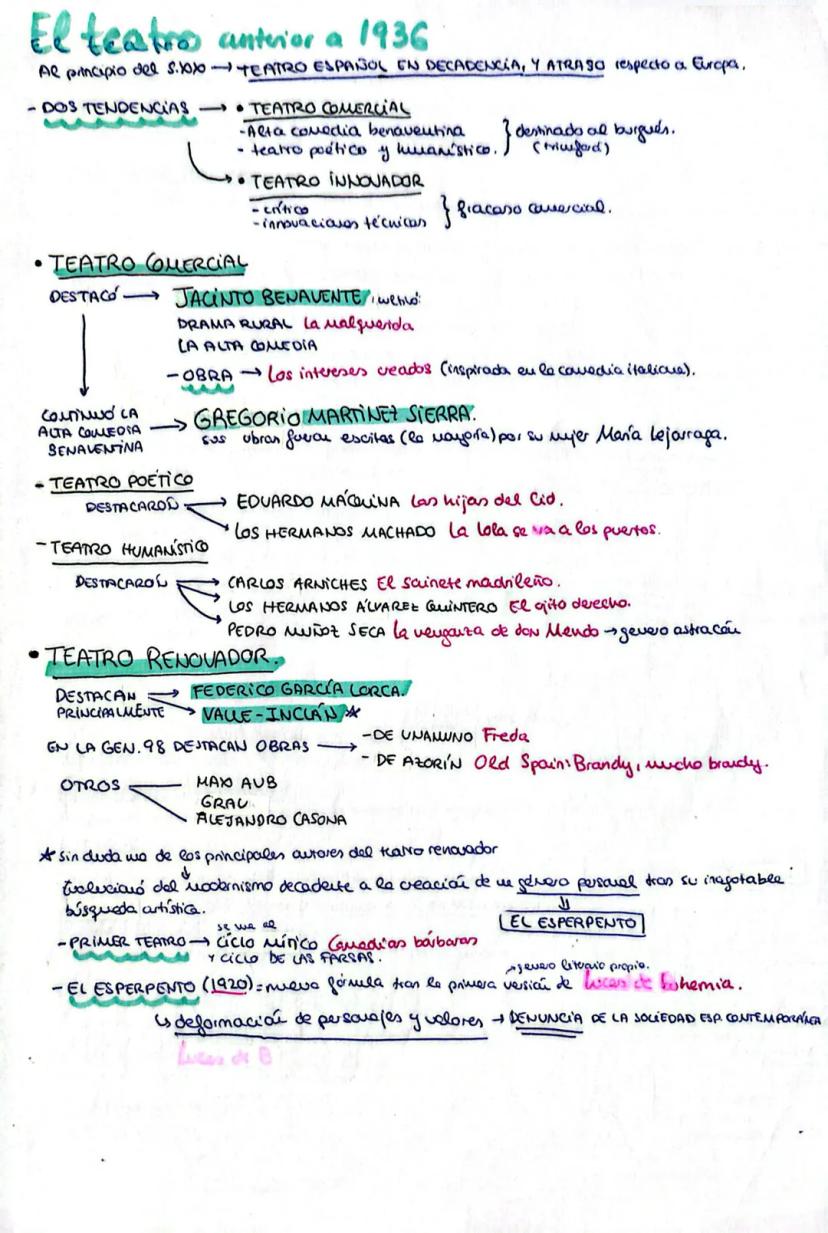 El teatro anterior a 1936
Al principio del S.XX → TEATRO ESPAÑOL EN DECADENCIA, Y ATRASO respecto a Europa.
- DOS TENDENCIAS → • TEATRO COMERCIAL
- Alta comedia benaventina
- teatro poético y humanístico.
} destinado al burgués.
(triunfará)
• TEATRO INNOVADOR
- crítico
- innovaciones técnicas
} fracaso comercial.
• TEATRO COMERCIAL
DESTACÓ → JACINTO BENAVENTE,
DRAMA RURAL La malquerida
LA ALTA COMEDIA
- OBRA → Los intereses creados (inspirada en la comedia italiana).
CONTINUÓ LA ALTA COMEDIA BENAVENTINA → GREGORIO MARTÍNEZ SIERRA.
sus obras fueron escritas (la mayoría) por su mujer María Lejarraga.
- TEATRO POÉTICO
DESTACARON → EDUARDO MÁQUINA Las hijas del Cid.
LOS HERMANOS MACHADO La Lola se va a los puertos.
- TEATRO HUMANÍSTICO
DESTACARON → CARLOS ARNICHES El sainete madrileño.
LOS HERMANOS ÁLVAREZ QUINTERO El ojito derecho.
PEDRO MUÑOZ SECA La venganza de don Mendo → genero astracán
• TEATRO RENOVADOR.
DESTACAN PRINCIPALMENTE → FEDERICO GARCÍA LORCA.
VALLE-INCLÁN *
EN LA GEN. 98 DESTACAN OBRAS → - DE UNAMUNO Freda
- DE AZORÍN Old Spain: Brandy, mucho brandy.
OTROS MAX AUB
GRAU
ALEJANDRO CASONA
* Sin duda uno de los principales autores del teatro renovador
Evolucionó del modernismo decadente a la creación de un género personal tras su inagotable
búsqueda artística.
EL ESPERPENTO
se une al
- PRIMER TEATRO → CICLO MÍTICO Comedias bárbaras
Y CICLO DE LAS FARSAS.
→ genero literario propio.
- EL ESPERPENTO (1920) = nueva fórmula tras la primera versión de Luces de Bohemia.
↳ deformación de personajes y valores → DENUNCIA DE LA SOCIEDAD ESP. CONTEMPORÁNEA
Luces de B